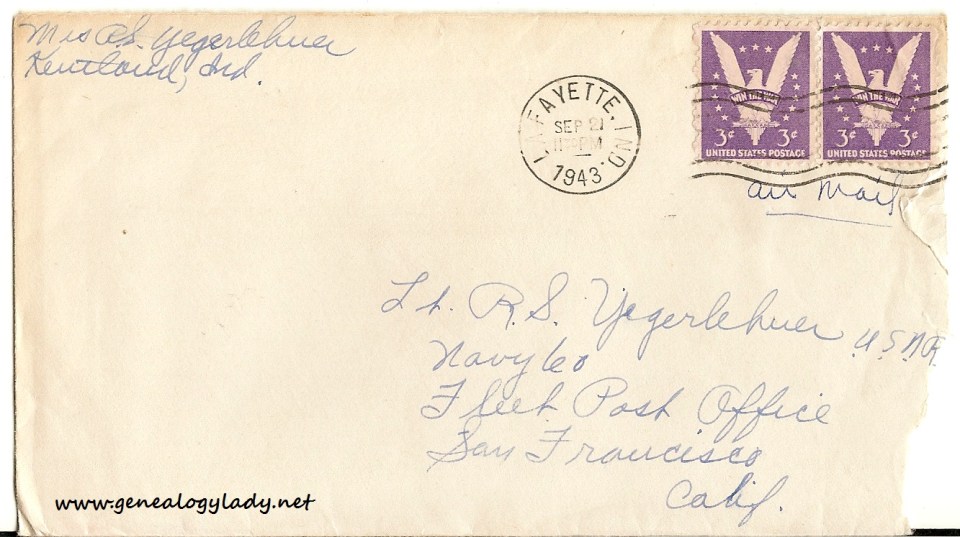 Mrs R.S. Yegerlehner
Kentland, Ind.
LAFAYETTE, IND.
SEP 21
PM
1 1943
WIN THE WAR
3¢ 3¢
UNITED STATES POSTAGE
WIN THE WAR
3¢ 3¢
UNITED STATES POSTAGE
air mail
Lt. R.S. Yegerlehner U.S.N.R.
Navy 60
Fleet Post Office
San Francisco
Calif.
www.genealogylady.net